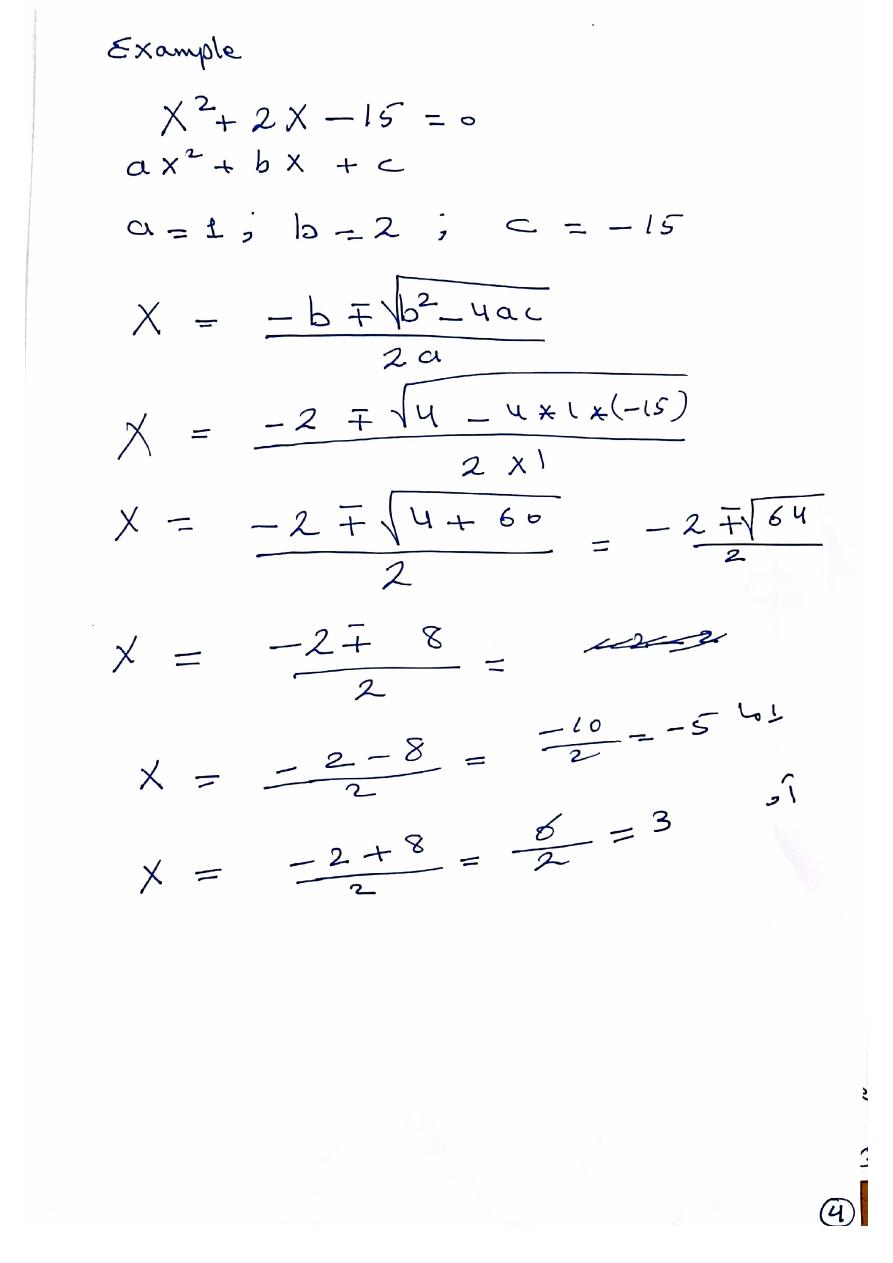 Example
X² + 2X - 15 = 0
ax² + bx + c
a = 1 ; b = 2 ; c = -15
X = (-b ∓ √(b² - 4ac)) / 2a
X = (-2 ∓ √(4 - 4*1*(-15))) / (2 x 1)
X = (-2 ∓ √(4 + 60)) / 2 = (-2 ∓ √64) / 2
X = (-2 ∓ 8) / 2 =
X = (-2 - 8) / 2 = -10 / 2 = -5 اما
او
X = (-2 + 8) / 2 = 6 / 2 = 3
4